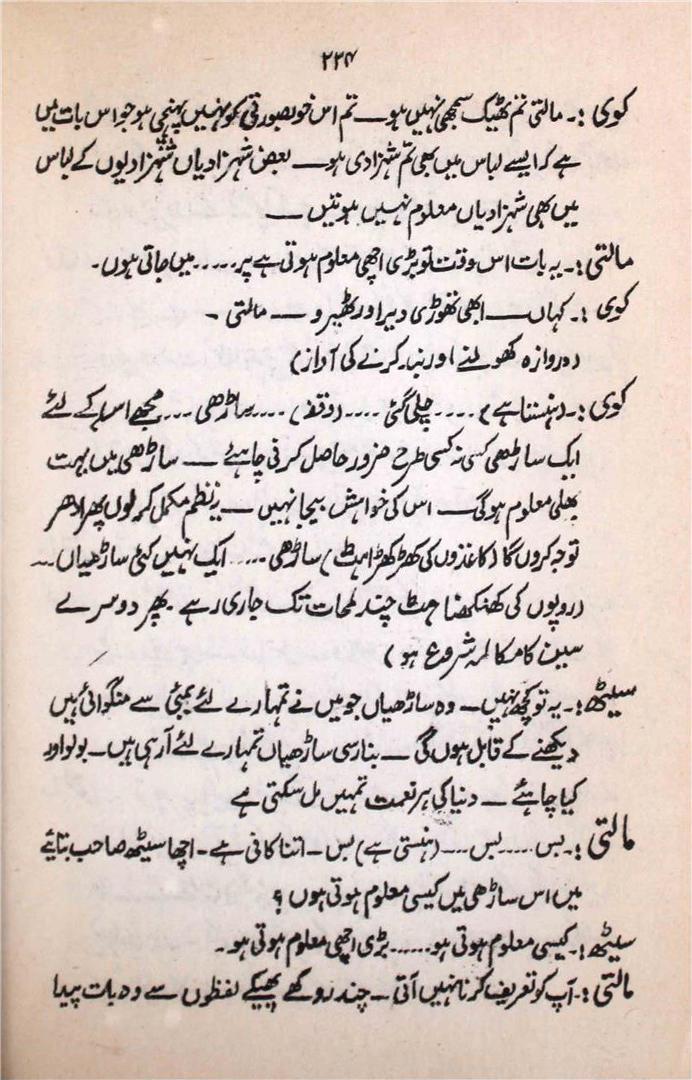 ۲۳۴
کوی :۔ مالتی تم ٹھیک سمجھی نہیں ہو ــــ تم اس خوبصورتی کو نہیں پہنچی ہو جو اس بات میں
ہے کہ ایسے لباس میں بھی تم شہزادی ہو ــــ بعض شہزادیاں شہزادیوں کے لباس
میں بھی شہزادیاں معلوم نہیں ہوتیں ــــ
مالتی :۔ یہ بات اس وقت تو بڑی اچھی معلوم ہوتی ہے پر ..... میں جاتی ہوں۔
کوی :۔ کہاں ــــ ابھی تھوڑی دیر اور ٹھیرو ــــ مالتی ۔
(دروازہ کھولنے اور بند کرنے کی آواز)
کوی :۔ (ہنستا ہے) .... چلی گئی .... (وقفہ) .... ساڑھی ... مجھے اس کے لئے
ایک ساڑھی کسی نہ کسی طرح ضرور حاصل کرنی چاہئے ــــ ساڑھی میں بہت
بھلی معلوم ہوگی ــــ اس کی خواہش بیجا نہیں ــــ یہ نظم مکمل کر لوں پھر ادھر
توجہ کروں گا (کاغذوں کی کھڑکھڑاہٹ) ساڑھی .... ایک نہیں کئی ساڑھیاں ...
(روپوں کی کھنکھناہٹ چند لمحات تک جاری رہے ۔ پھر دوسرے
سین کا مکالمہ شروع ہو)
سیٹھ :۔ یہ تو کچھ نہیں ــــ وہ ساڑھیاں جو میں نے تمہارے لئے بمبئی سے منگوائی ہیں
دیکھنے کے قابل ہوں گی ــــ بنارسی ساڑھیاں تمہارے لئے آ رہی ہیں ۔ بولو اور
کیا چاہئے ــــ دنیا کی ہر نعمت تمہیں مل سکتی ہے
مالتی :۔ بس .... بس ... (ہنستی ہے) بس ۔ اتنا کافی ہے ۔ اچھا سیٹھ صاحب بتایئے
میں اس ساڑھی میں کیسی معلوم ہوتی ہوں ؟
سیٹھ :۔ کیسی معلوم ہوتی ہو ...... بڑی اچھی معلوم ہوتی ہو ۔
مالتی :۔ آپ کو تعریف کرنا نہیں آتی ۔ چند روکھے پھیکے لفظوں سے وہ بات پیدا